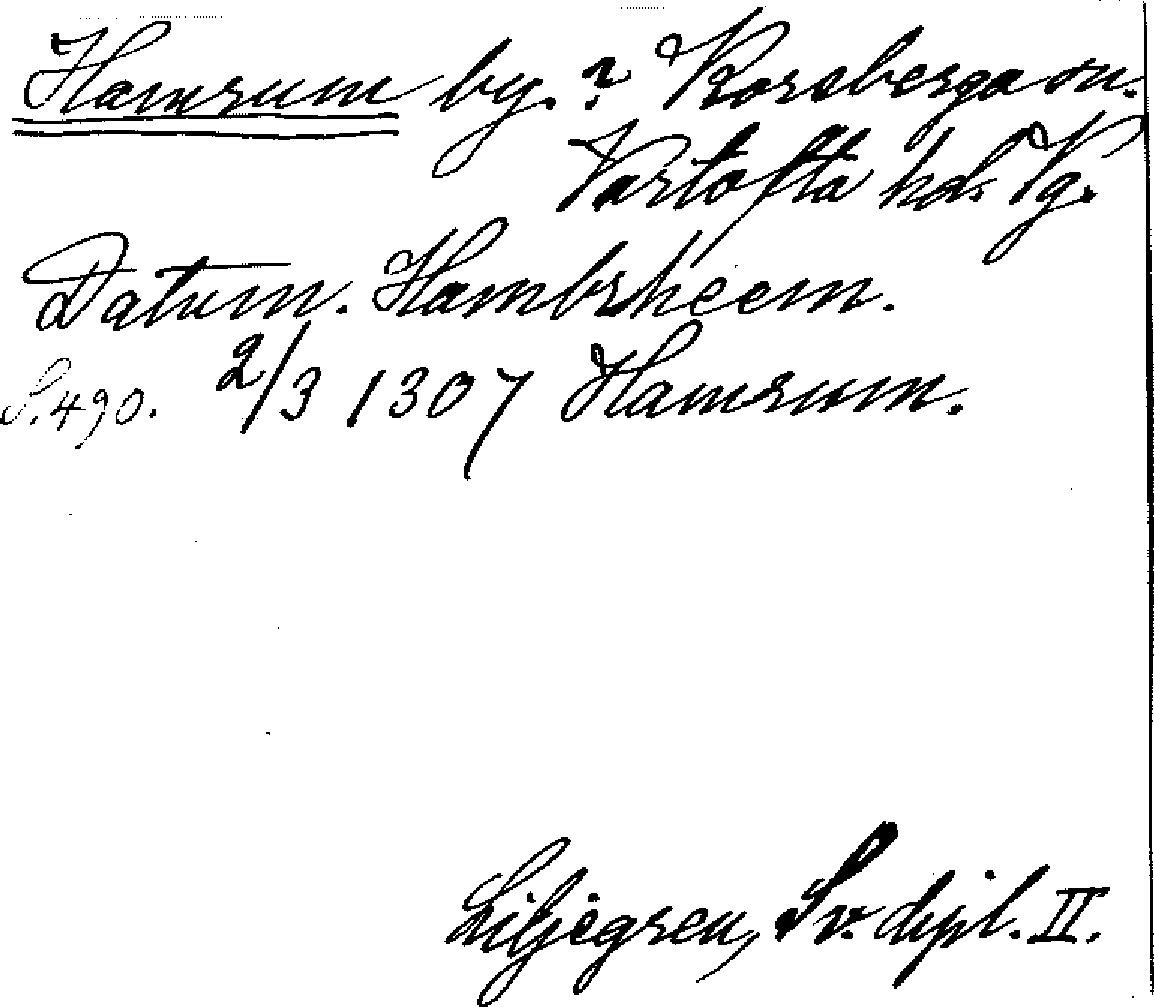 Hamrum by. ? Korsberga sn.
Vartofta hd. Vg.
Datum. Hambrheem.
S. 490. 2/3 1307 Hamrum.
Liljegren, Sv. dipl. II.